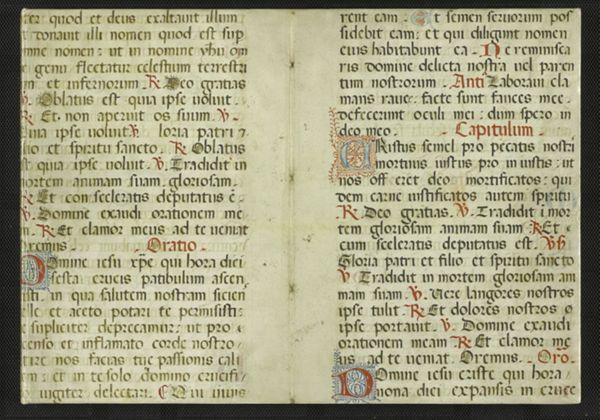 er quod et deus exaltauit illum
t donauit illi nomen quod est sup
mne nomen: ut in nomine yhu om
e genu flectatur celestium terrestri
m et infernorum. R Deo gratias
V. Oblatus est quia ipse uoluit.
R Et. non aperuit os suum. V.
uia ipse uoluit V. loria patri 7
lio et spiritu sancto. R Oblatus
st quia ipse uoluit. V. Tradidit in
ortem animam suam. gloriosam.
R Et con sceleratis deputatus ē.
V. Domine exaudi orationem me
m. R Et clamor meus ad te ueniat
remus. Oratio.
Domine iesu xpe qui hora diei
sexta crucis patibulum ascen
isti. in qua salutem nostram sicien
lle et aceto potari te permisisti:
e supliciter deprecamur: ut pro e
censo et inflamato corde nostro
tire nos facias tue passionis cali
em: et in te solo domino crucifi
iugiter delectari. Qui uiuis
rent eam. Et semen seruorum pos
sidebit eam: et qui diligunt nomen
eius habitabunt ea. Ne reminisca
ris domine delicta nostra uel paren
tum nostrorum. Anti Laboraui cla
mans rauce. facte sunt fauces mee.
defecerunt oculi mei: dum spero in
deo meo. Capitulum.
Cristus semel pro pecatis nostri
mortuus iustus pro in iustis: ut
nos off eret deo mortificatos: qui
dem carne iustificatos autem spiritu
R. Deo gratias. V. Tradidit i mor
tem gloriosam animam suam R Et
cum sceleratis deputatus est. V
Gloria patri et filio et spiritu sancto
V Tradidit in mortem gloriosam ani
mam suam. V. Uere langores nostros
ipse tulit. R Et dolores nostros o
ipse portauit. V. Domine exaudi
orationem meam R Et clamor me
us ad te ueniat. Oremus. Orō.
Domine iesu criste qui hora
nona diei expansis in cruce